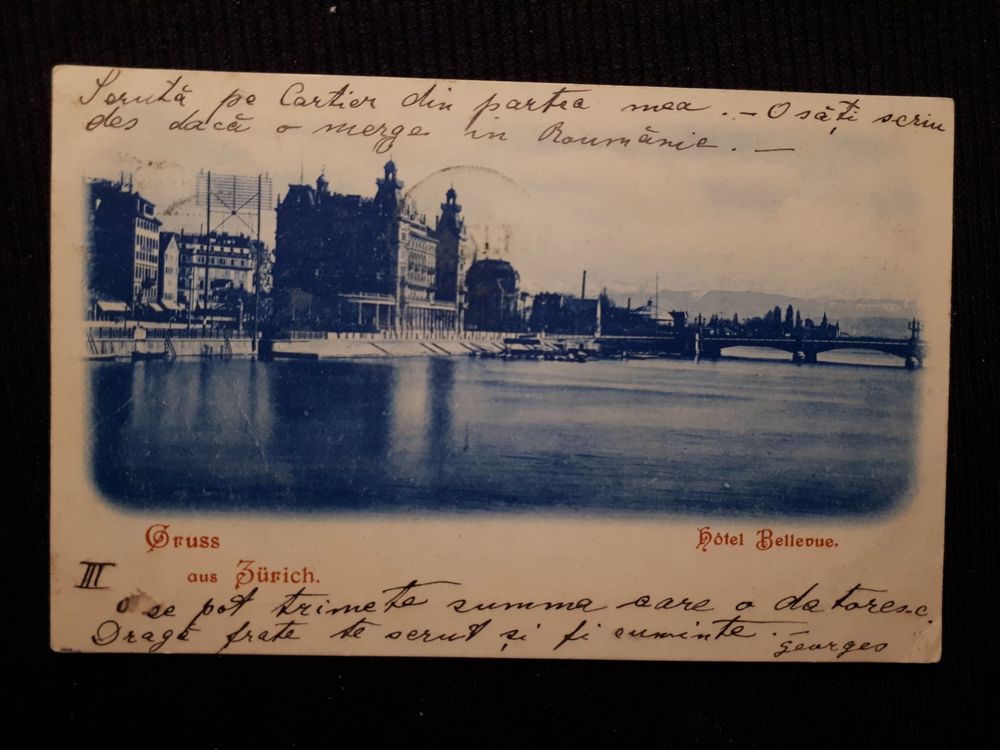 Serută pe Cartier din partea mea. — O să ți scriu
des dacă o merge in Roumănie. —
Gruss
aus Zürich.
Hôtel Bellevue.
III
o se pot trimete summa care o datoresc.
Dragă frate te serut și fi cuminte. —
Georges